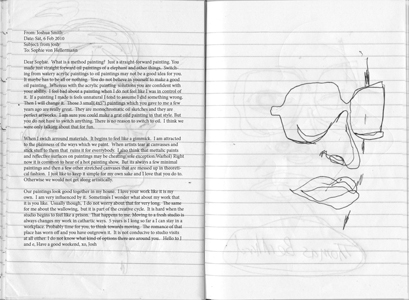 From: Joshua Smith
Date: Sat, 6 Feb 2010
Subject: from Josh
To: Sophie von Hellermann
Dear Sophie. What is a method painting? Just a straight-forward painting. You
made two straight forward oil paintings of a elephant and other things. Switch-
ing from watery acrylic paintings to oil paintings may not be a good idea for you.
It maybe has to be all or nothing. You do not believe in yourself to make a good
oil painting. Whereas with the acrylic painting solutions you are confident with
your ability. I feel bad about a painting when I do not feel like I was in control of
it. If a painting I made is feels unnatural I tend to assume I did something wrong.
Then I will change it. Those 3 small paintings which you gave to me a few
years ago are really great. They are monochromatic oil sketches and they are
perfect artworks. I am sure you could make a grid oil painting in that style. But
you do not have to switch anything. There is no reason to switch to oil. I think we
were only talking about that for fun.
When I switch around materials. It begins to feel like a gimmick. I am attracted
to the plainness of the ways which we paint. When artists tear at canvases and
stick stuff to them that ruins it for everybody. I also think that metallic paints
and reflective surfaces on paintings may be cheating (with exception Warhol) Right
now it is common in hear of a hot painting show. But its always a few minimal
paintings and then a few other stretched canvases that are messed up in theatri-
cal fashion. I not like to keep it simple for my own sake and I love that you do to.
Otherwise we would not get along artistically.
Our paintings look good together in my home. I love your work like it is my
own. I am very influenced by it. Sometimes I wonder what about my work that
it is you like. Usually though, I do not worry about that for very long. The same
for me about the wallowing, but it is part of the creative cycle. It is hard when the
studio begins to feel like a prison. That happens to me. Moving to a fresh studio is
always changes my work in cathartic ways. 3 years is I long so far as I can stay in a
workplace. Probably time for you, to think towards moving. The romance of that
place has worn off and you have outgrown it. It is not conducive to studio visits
at all either. I do not know what kind of options there are around you. Hello to J
and s. Have a good weekend, xo, Josh